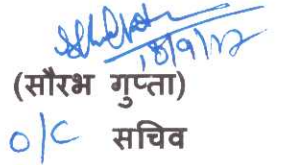 18/9/12
(सौरभ गुप्ता)
O/C सचिव